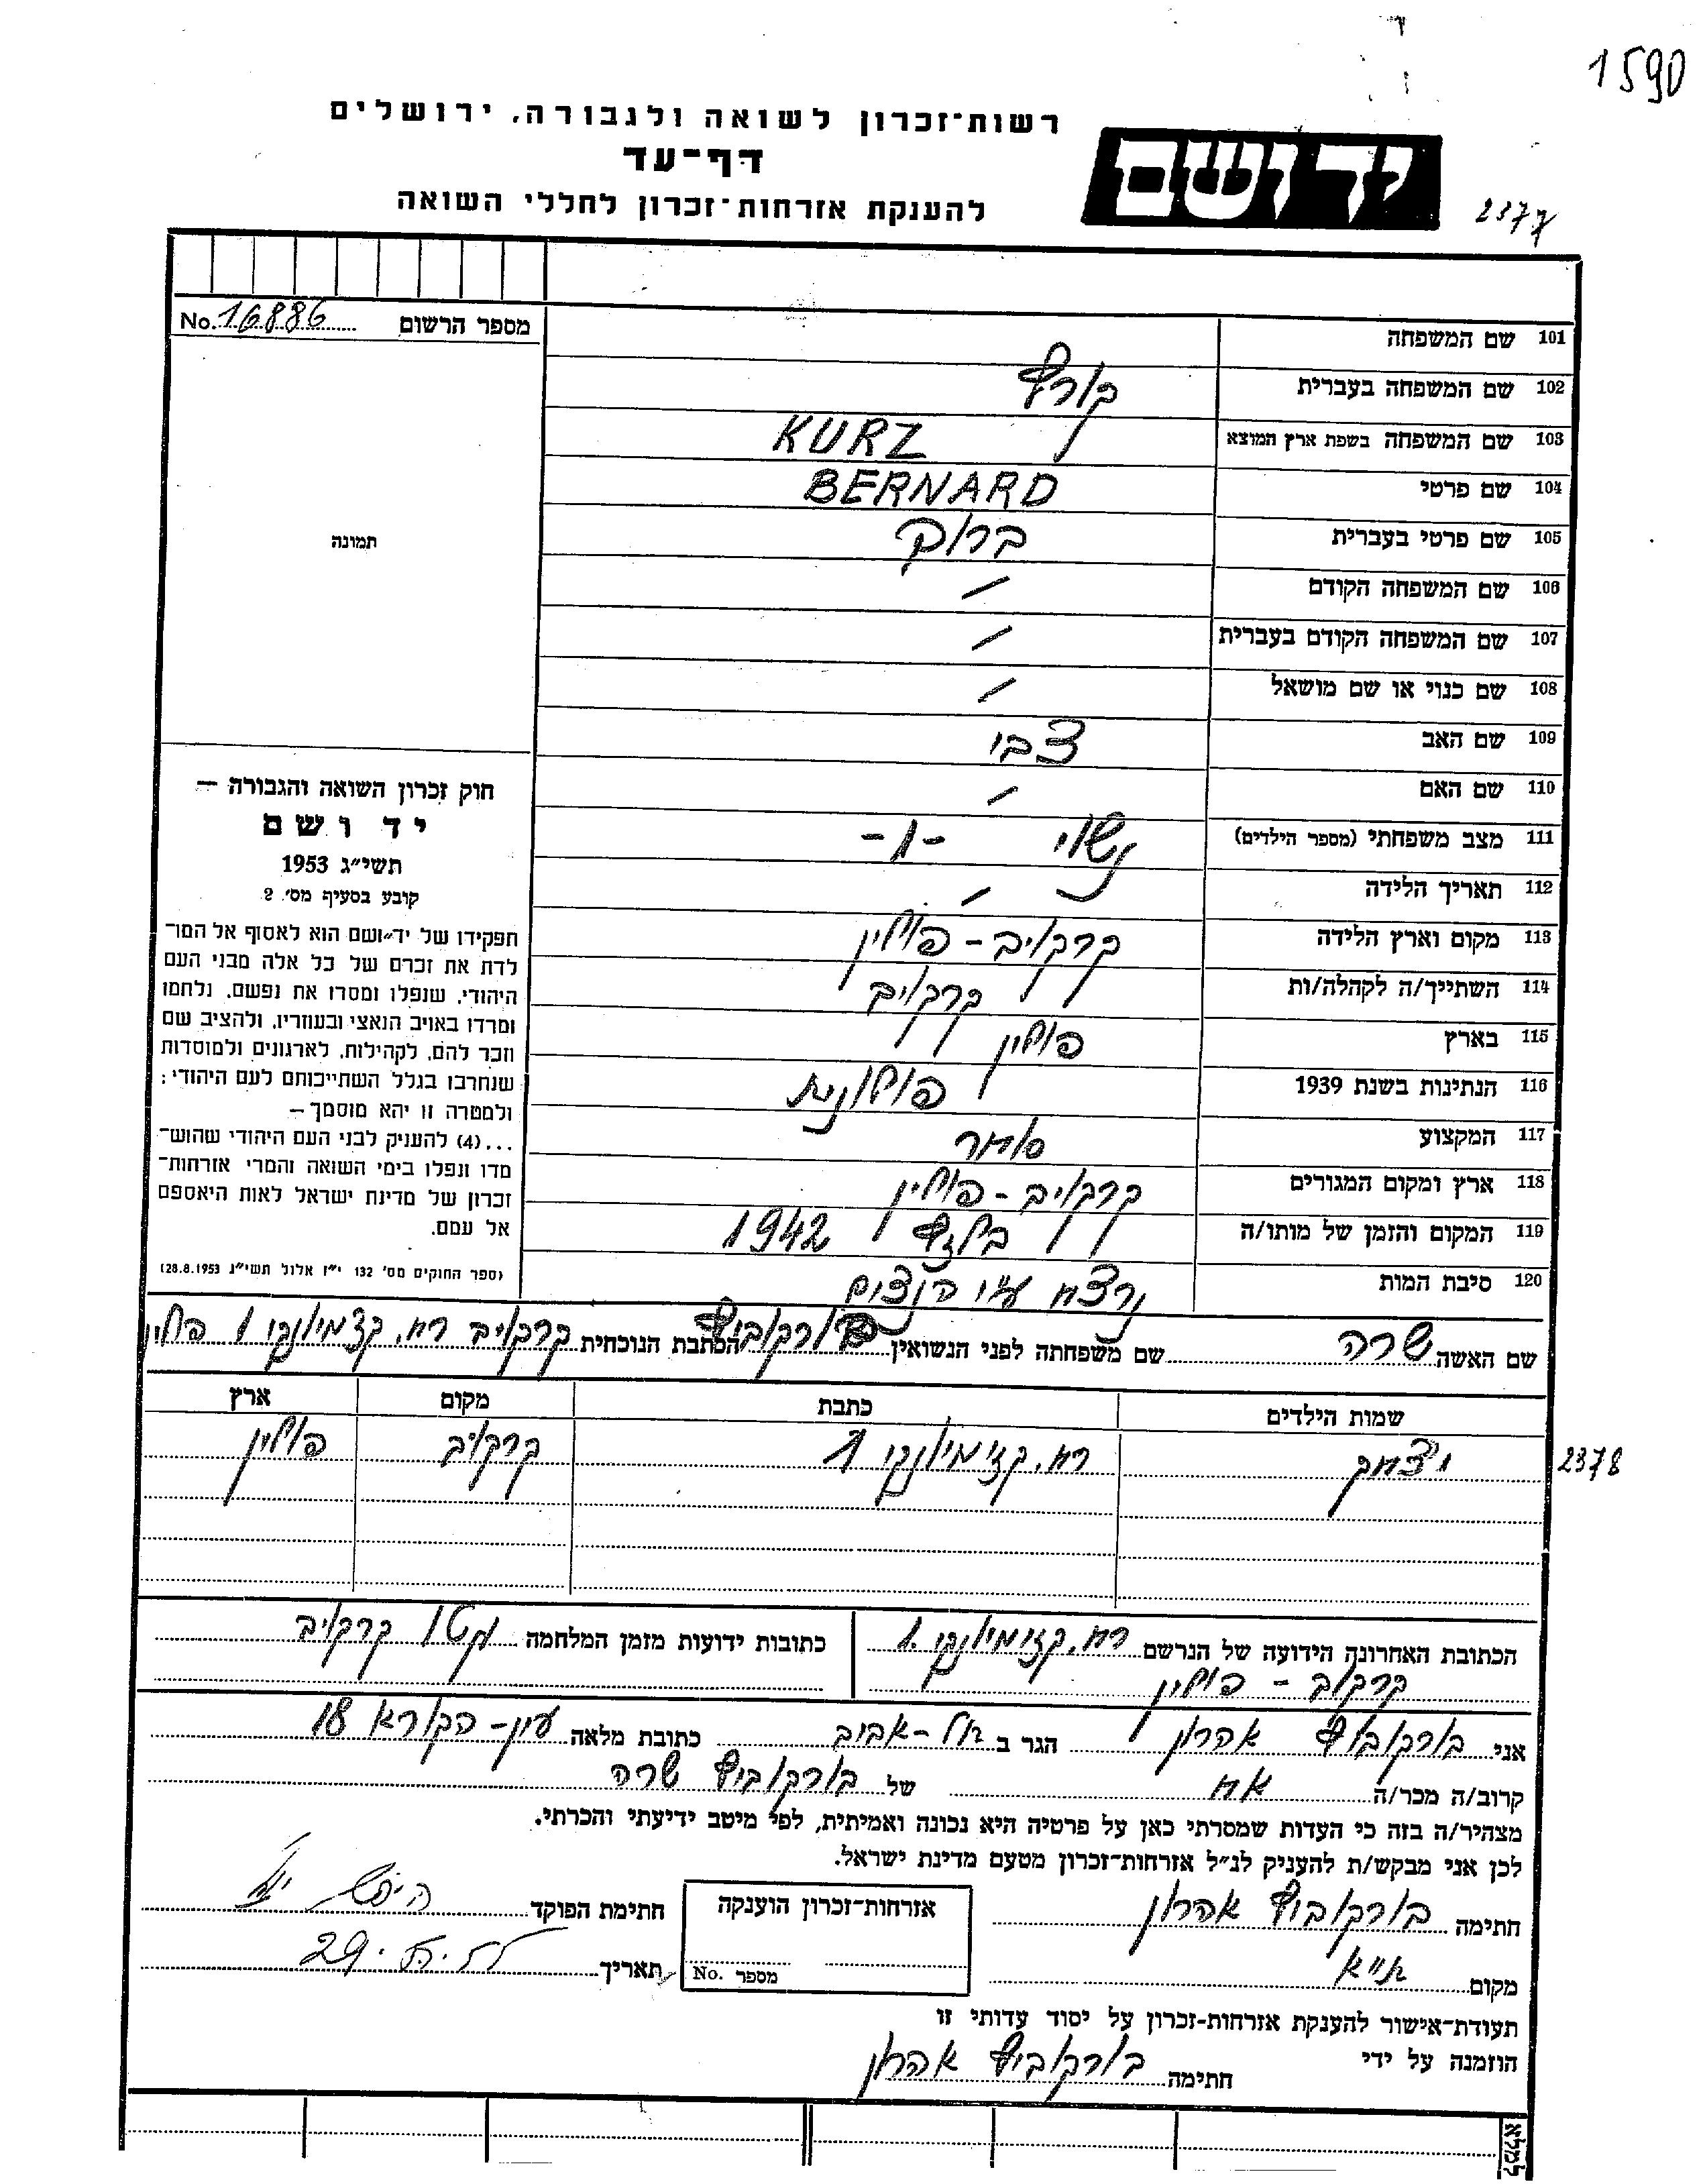 1590
רשות־זכרון לשואה ולגבורה, ירושלים
דף־עד
להענקת אזרחות־זכרון לחללי השואה
יד ושם
2377
מספר הרשום No. 16886
101 שם המשפחה
102 שם המשפחה בעברית קורץ
103 שם המשפחה בשפת ארץ המוצא KURZ
104 שם פרטי BERNARD
105 שם פרטי בעברית ברוך
106 שם המשפחה הקודם /
107 שם המשפחה הקודם בעברית /
108 שם כנוי או שם מושאל /
109 שם האב צבי
110 שם האם /
111 מצב משפחתי (מספר הילדים) נשוי -1-
112 תאריך הלידה /
113 מקום וארץ הלידה קרקוב - פולין
114 השתייך/ה לקהלה/ות קרקוב
115 בארץ פולין
116 הנתינות בשנת 1939 פולונית
117 המקצוע סוחר
118 ארץ ומקום המגורים קרקוב - פולין
119 המקום והזמן של מותו/ה בלזץ 1942
120 סיבת המות נרצח ע״י הנצים
תמונה
חוק זכרון השואה והגבורה —
יד ושם
תשי״ג 1953
קובע בסעיף מס׳ 2
תפקידו של יד־ושם הוא לאסוף אל המו־
לדת את זכרם של כל אלה מבני העם
היהודי, שנפלו ומסרו את נפשם, נלחמו
ומרדו באויב הנאצי ובעוזריו, ולהציב שם
וזכר להם, לקהילות, לארגונים ולמוסדות
שנחרבו בגלל השתייכותם לעם היהודי;
ולמטרה זו יהא מוסמך –
...(4) להעניק לבני העם היהודי שהוש־
מדו ונפלו בימי השואה והמרי אזרחות־
זכרון של מדינת ישראל לאות היאספם
אל עמם.
(ספר החוקים מס׳ 132 י״ז אלול תשי״ג 28.8.1953)
שם האשה שרה שם משפחתה לפני הנשואין בורקוביץ הכתבת הנוכחית קרקוב רח. קזימיז'בסקי 1 פולין
שמות הילדים כתבת מקום ארץ
יצחק רח. 1 קרקוב פולין
2378
הכתובת האחרונה הידועה של הנרשם רח. 1 כתובות ידועות מזמן המלחמה גטו קרקוב
קרקוב - פולין
אני בורקוביץ אהרון הגר ב תל-אביב כתובת מלאה עין-הקורא 18
קרוב/ה מכר/ה אח של בורקוביץ שרה
מצהיר/ה בזה כי העדות שמסרתי כאן על פרטיה היא נכונה ואמיתית, לפי מיטב ידיעתי והכרתי.
לכן אני מבקש/ת להעניק לנ״ל אזרחות־זכרון מטעם מדינת ישראל.
חתימה בורקוביץ אהרון אזרחות־זכרון הוענקה חתימת הפוקד
מקום ת״א מספר No. תאריך
תעודת־אישור להענקת אזרחות-זכרון על יסוד עדותי זו
הוזמנה על ידי
חתימה בורקוביץ אהרון
למלא